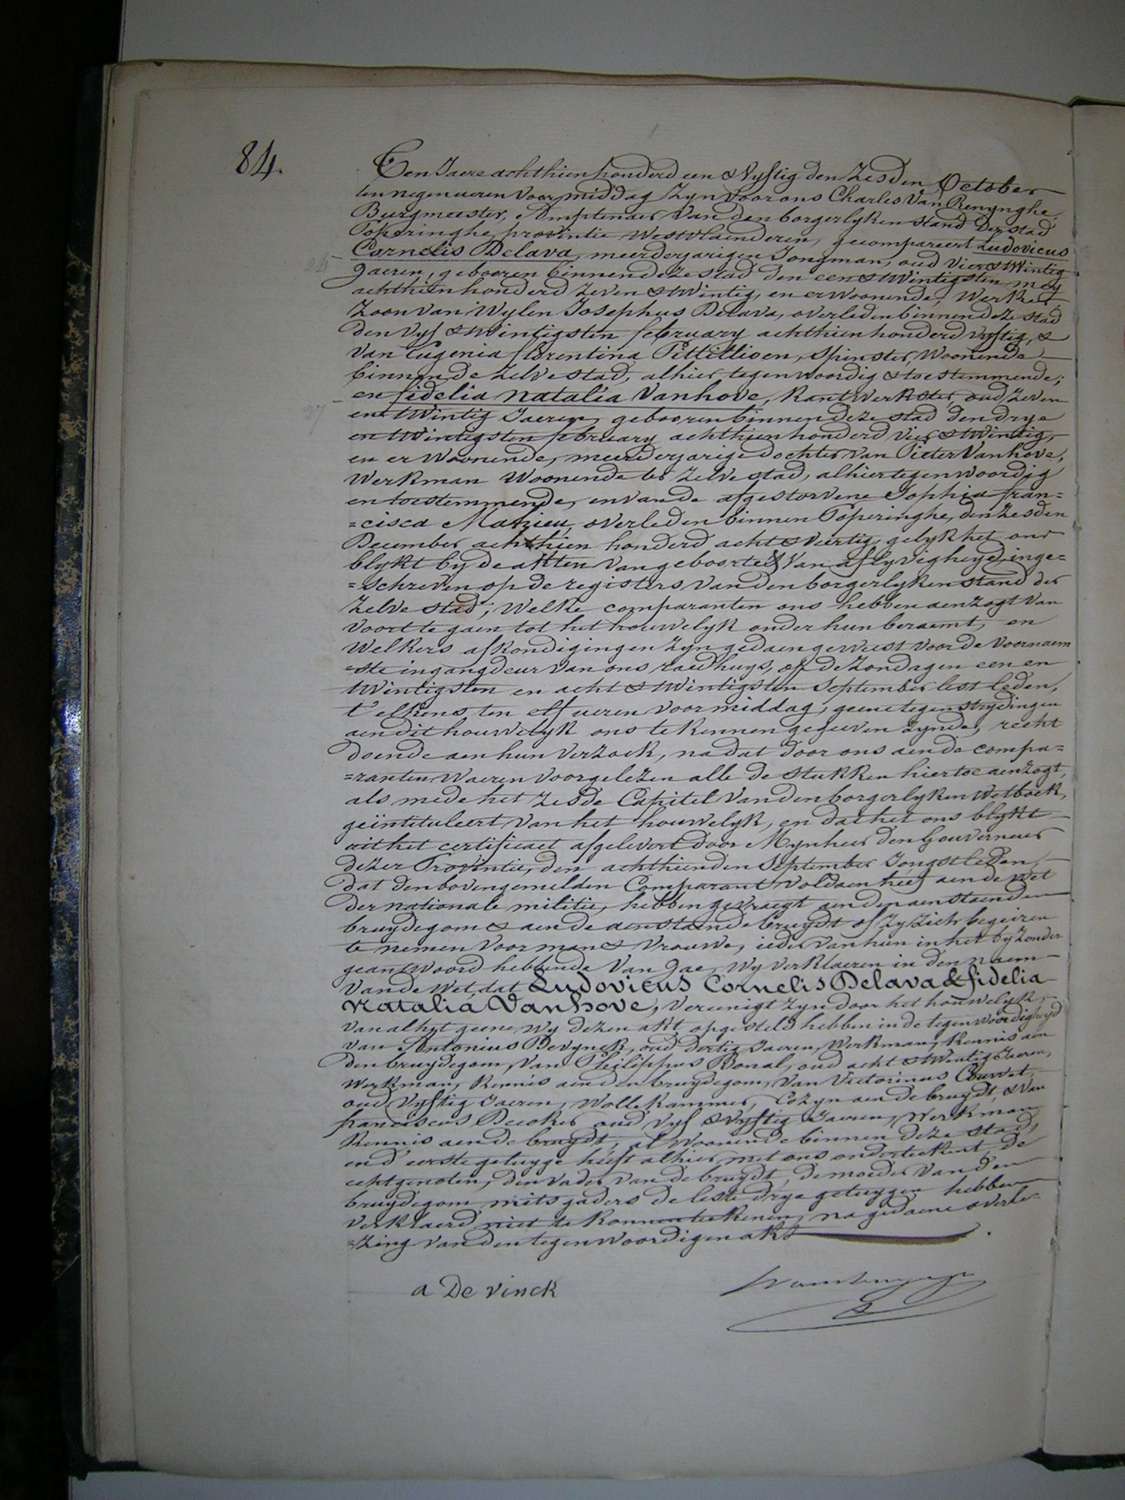 84.
Een Jaere achthien honderd een & Vyftig den Zesden October
ten negen ueren Voor middag Zyn Voor ons Charles Van Renynghe,
Burgmeester, Amptenaer Van den borgerlyken stand der stad
Poperinghe, provintie Westvlaenderen, gecompareert Ludovicus
Cornelis Delava, meerderjarigen Jongman, oud Vier & twintig
Jaeren, gebooren binnen deze stad den een & twintigsten mey
achthien honderd Zeven & twintig, en er Woonende, Werkman
Zoon van Wylen Josephus Delava, overleden binnen deze stad
den Vyf & twintigsten february achthien honderd Vyftig, &
Van Eugenia florentina Pittillioen, Spinster, Woonende
binnen de Zelve stad, alhier tegenwoordig & toestemmende;
en fidelia natalia Vanhove, Kantwerkster, oud Zeven
en twintig Jaeren, gebooren binnen deze stad den drye
en twintigsten february achthien honderd Vier & twintig,
en er Woonende, meerderjarige dochter van Pieter Vanhove,
Werkman Woonende ter Zelve stad, alhier tegenwoordig
en toestemmende, en van de afgestorvene Sophia fran=
=cisca Mazieu, overleden binnen Poperinghe, den Zesden
December achthien honderd acht & Veertig gelyk het ons
blykt by de akten Van geboorte & Van aflyvigheyd inge=
=schreven op de registers Van den borgerlyken stand der
Zelve stad; Welke comparanten ons hebben aenzogt Van
Voort te gaen tot het houwelyk onder hun beraemt, en
Welkers afkondigingen Zyn gedaen geweest voor de Voornaem
=ste ingangdeur Van ons raedhuys, op de Zondagen een en
twintigsten en acht & twintigsten September lest leden,
t'elkens ten elf ueren voor middag; geene tegenstrydingen
aen dit houwelyk ons te kennen gegeven zynde, recht
doende aen hun Verzoek, na dat door ons aen de compa=
=ranten Waeren Voorgelezen alle de stukken hiertoe aenzogt,
als mede het Zesde Capitel Van den borgerlyken Wetboek,
geïntituleert Van het houwelyk, en dat het ons blykt
uit het certificaet afgelevert door Mynheer den Gouverneur
dezer Provintie, den achthienden September Jongstleden,
dat den bovengemelden Comparant Voldaen heeft aen de Wet
der nationale militie, hebben gevraegt aen den aenstaenden
bruydegom & aen de aenstaende bruydt of Zy Zich begeiren
te nemen Voor man & Vrouwe, ieder van hun in het byzonder
geantWoord hebbende Van Jae, Wy Verklaeren in den naem
Van de Wet, dat Ludovicus Cornelis Delava & fidelia
Natalia Vanhove, Vereenigt Zyn door het houwelyk,
Van al het geene Wy dezen akt opgesteld hebben in de tegenwoordigheyd
van Antonius Devynck, oud dertig Jaeren, Werkman, Kennis aen
den bruydegom, Van Philippus Bonal, oud acht & twintig Jaeren,
Werkman, Kennis aen den bruydegom, Van Victorinus
oud Vyftig Jaeren, Wollekammer, Cozyn aen de bruydt, & Van
franciscus Decoker oud Vyf & Vyftig Jaeren, Werkman
Kennis aen de bruydt, al Woonende binnen deze stad,
en d'eerste getuyge heeft alhier met ons onderteekent, de
echtgenoten, den Vader van de bruydt, de moeder Van den
bruydegom, mitsgaders de leste drye getuygen hebben
Verklaerd niet te konnen teekenen, na gedaene overle=
=zing van den tegenwoordigen akt.
a De vinck